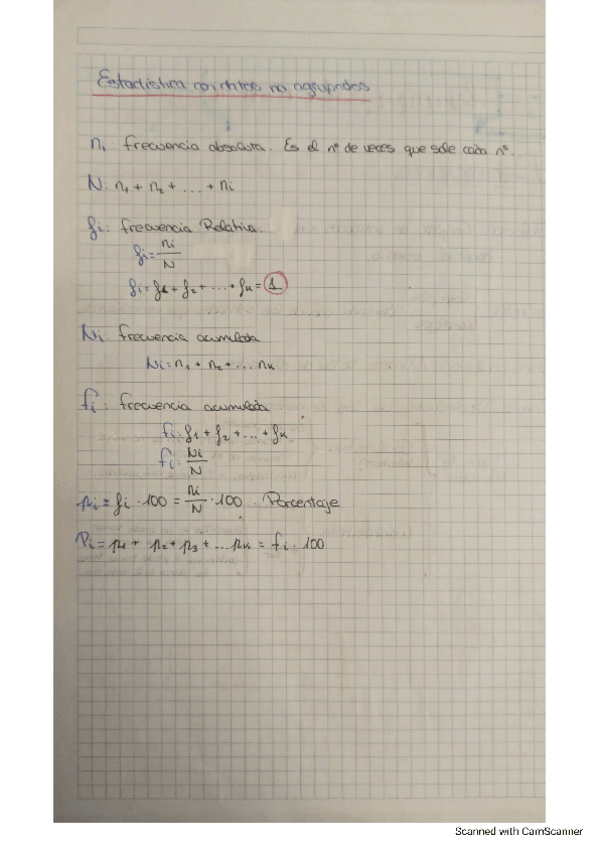 Estadística con datos no agrupados
ni: frecuencia absoluta. Es el nº de veces que sale cada nº.
N: n1 + n2 + ... + ni
fi: frecuencia Relativa.
fi = ni/N
fi = f1 + f2 + ... + fk = 1
Ni: frecuencia acumulada
Ni = n1 + n2 + ... nk
Fi: frecuencia acumulada
Fi: f1 + f2 + ... + fk
Fi: Ni/N
pi = fi · 100 = ni/N · 100 Porcentaje
Pi = p1 + p2 + p3 + ... pk = Fi · 100
Scanned with CamScanner